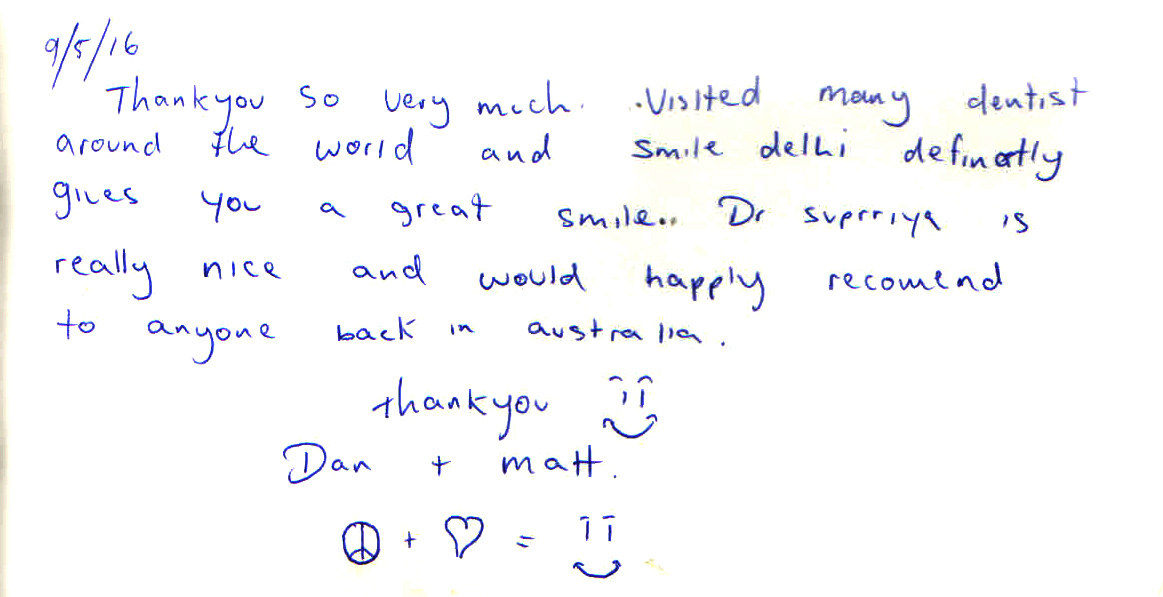 9/5/16
Thankyou so very much. .Visited many dentist
around the world and smile delhi definatly
gives you a great smile.. Dr suprriya is
really nice and would happly recomend
to anyone back in australia.
thankyou
Dan + matt.
+ =